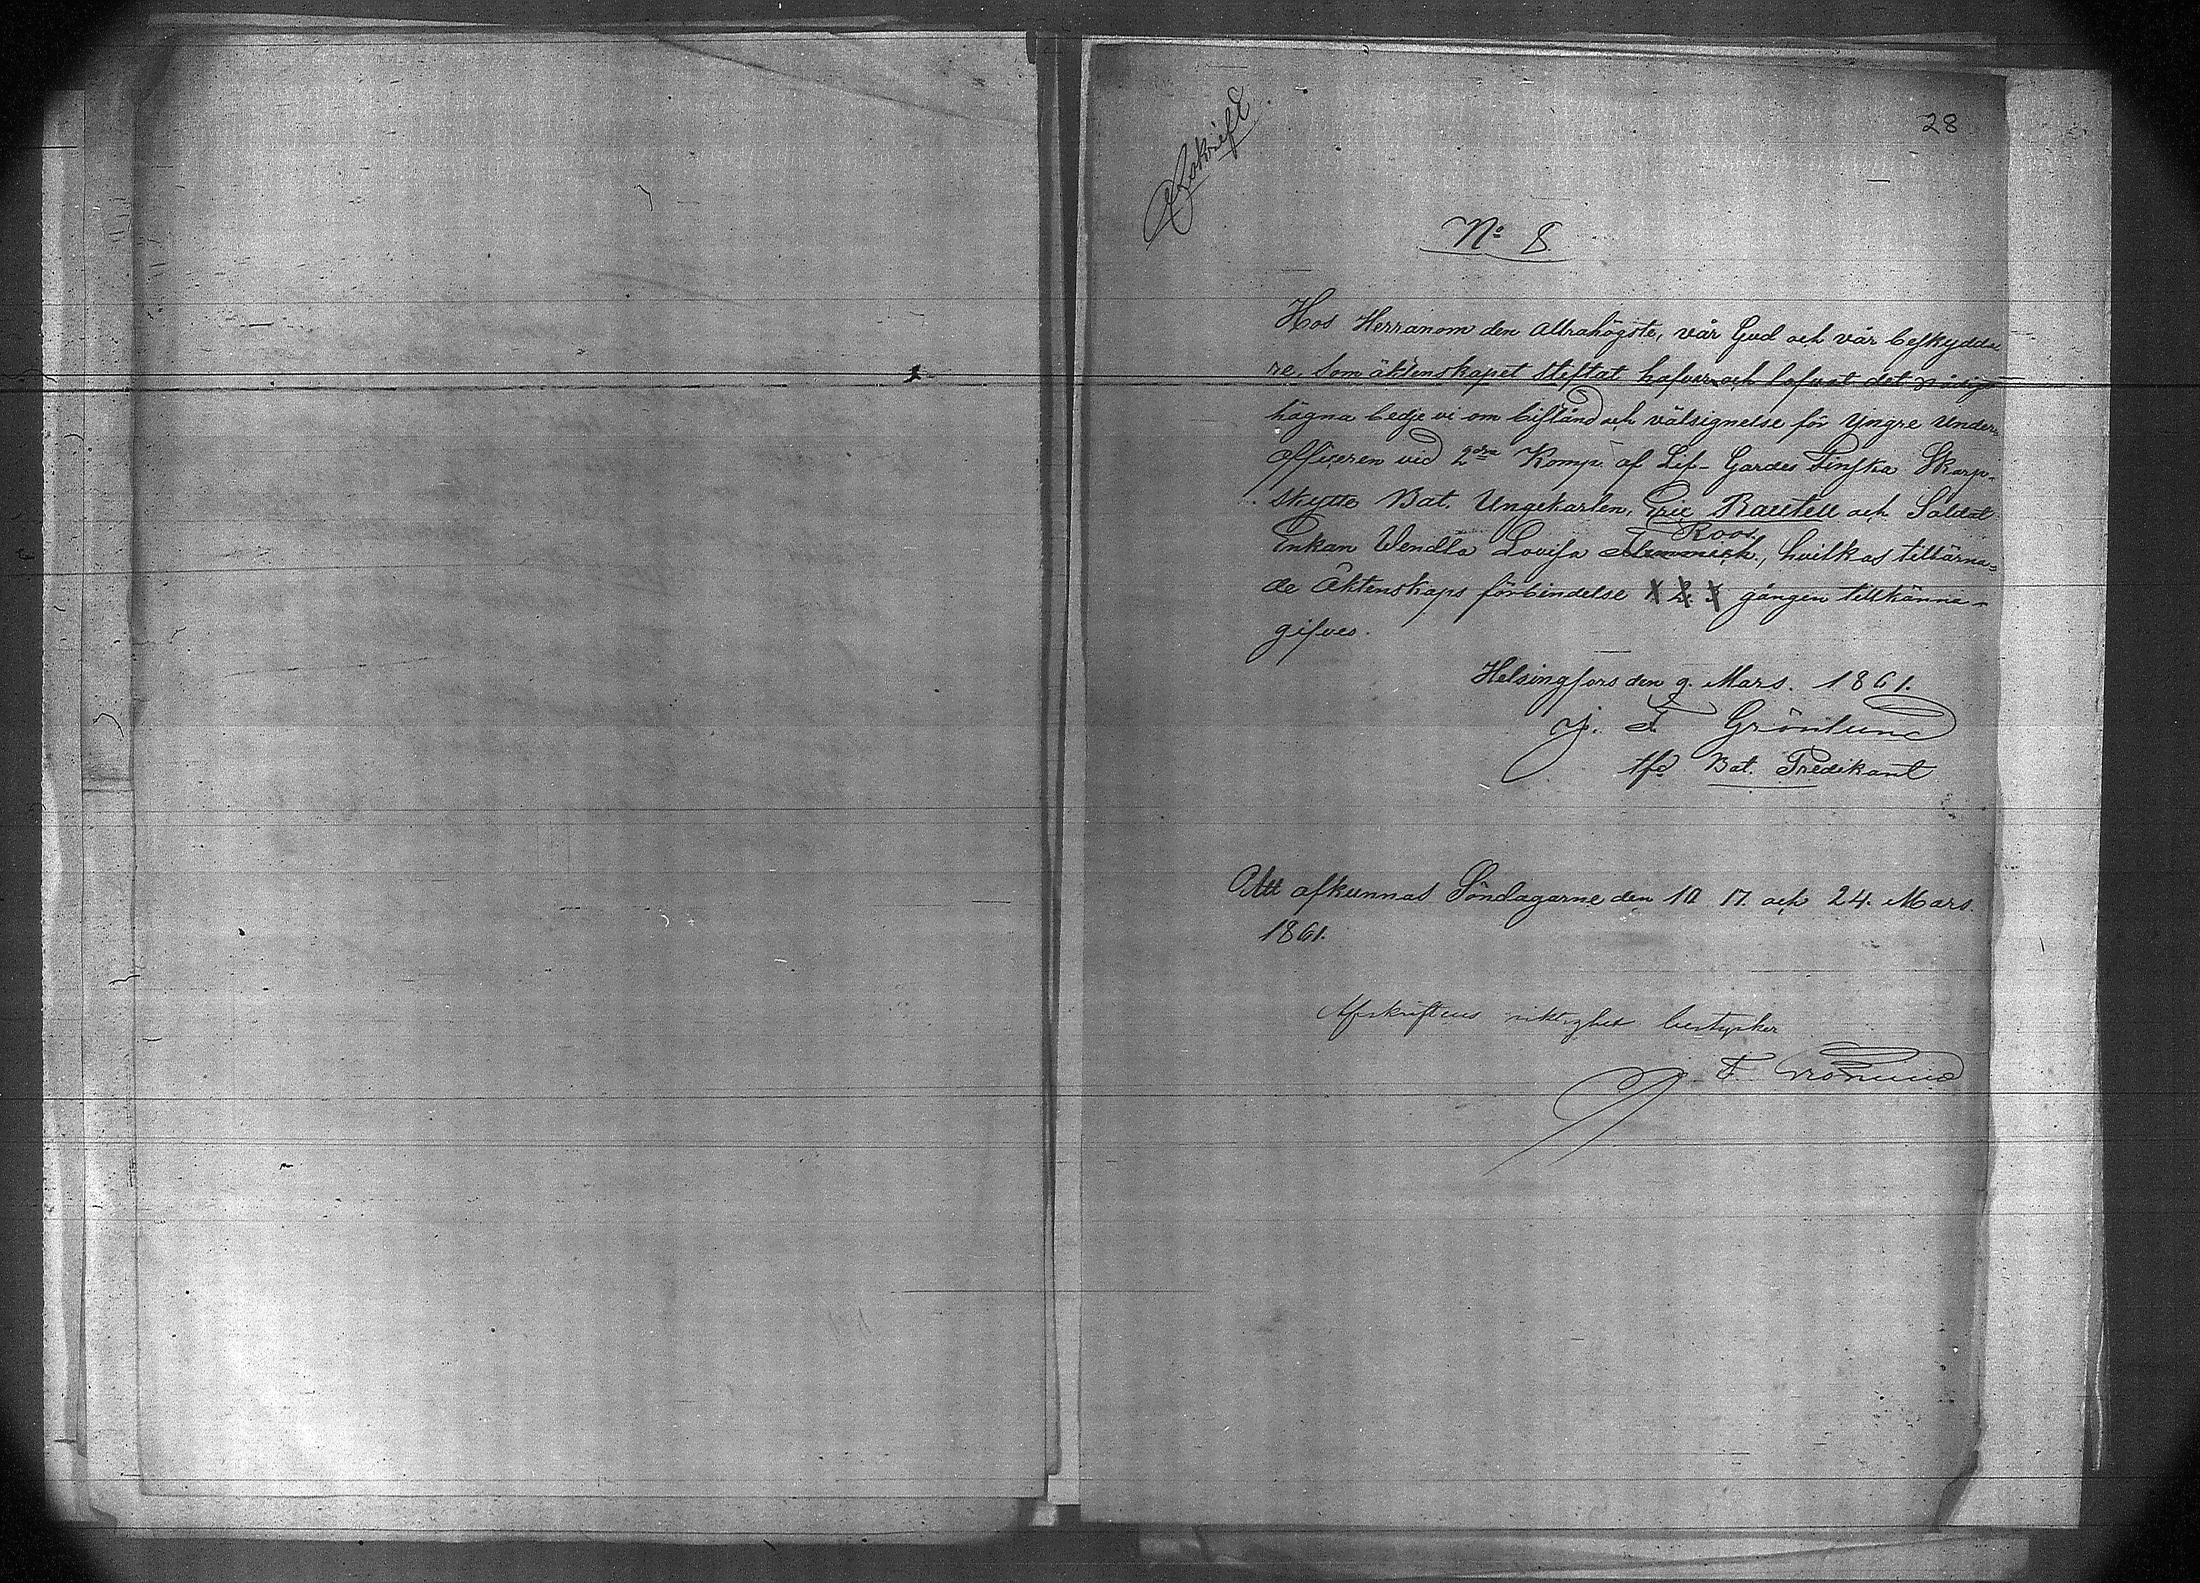 28
Afskrift
No 8.
Hos Herranom den Allrahögste, vår Gud och vår beskydda
re, som äktenskapet stiftat hafver och lofvat det nådigt
hägna bedje vi om bistånd och välsignelse för Yngre Under-
officeren vid 2dra Komp. af Lif-Gardes Finska Skarp-
skytte Bat. Ungekarlen, Eric Rautell och Soldat
Roos
Enkan Wendla Lovisa, hvilkas tillärna=
de Äktenskaps förbindelse 1 2. 3 gången tillkänna-
gifves.
Helsingfors den 9. Mars. 1861.
J. F. Grönlund
tfd Bat. Predikant
Att afkunnas Söndagarne den 10 17. och 24. Mars.
1861.
Afskriftens riktighet bestyrker
J. F. Grönlund